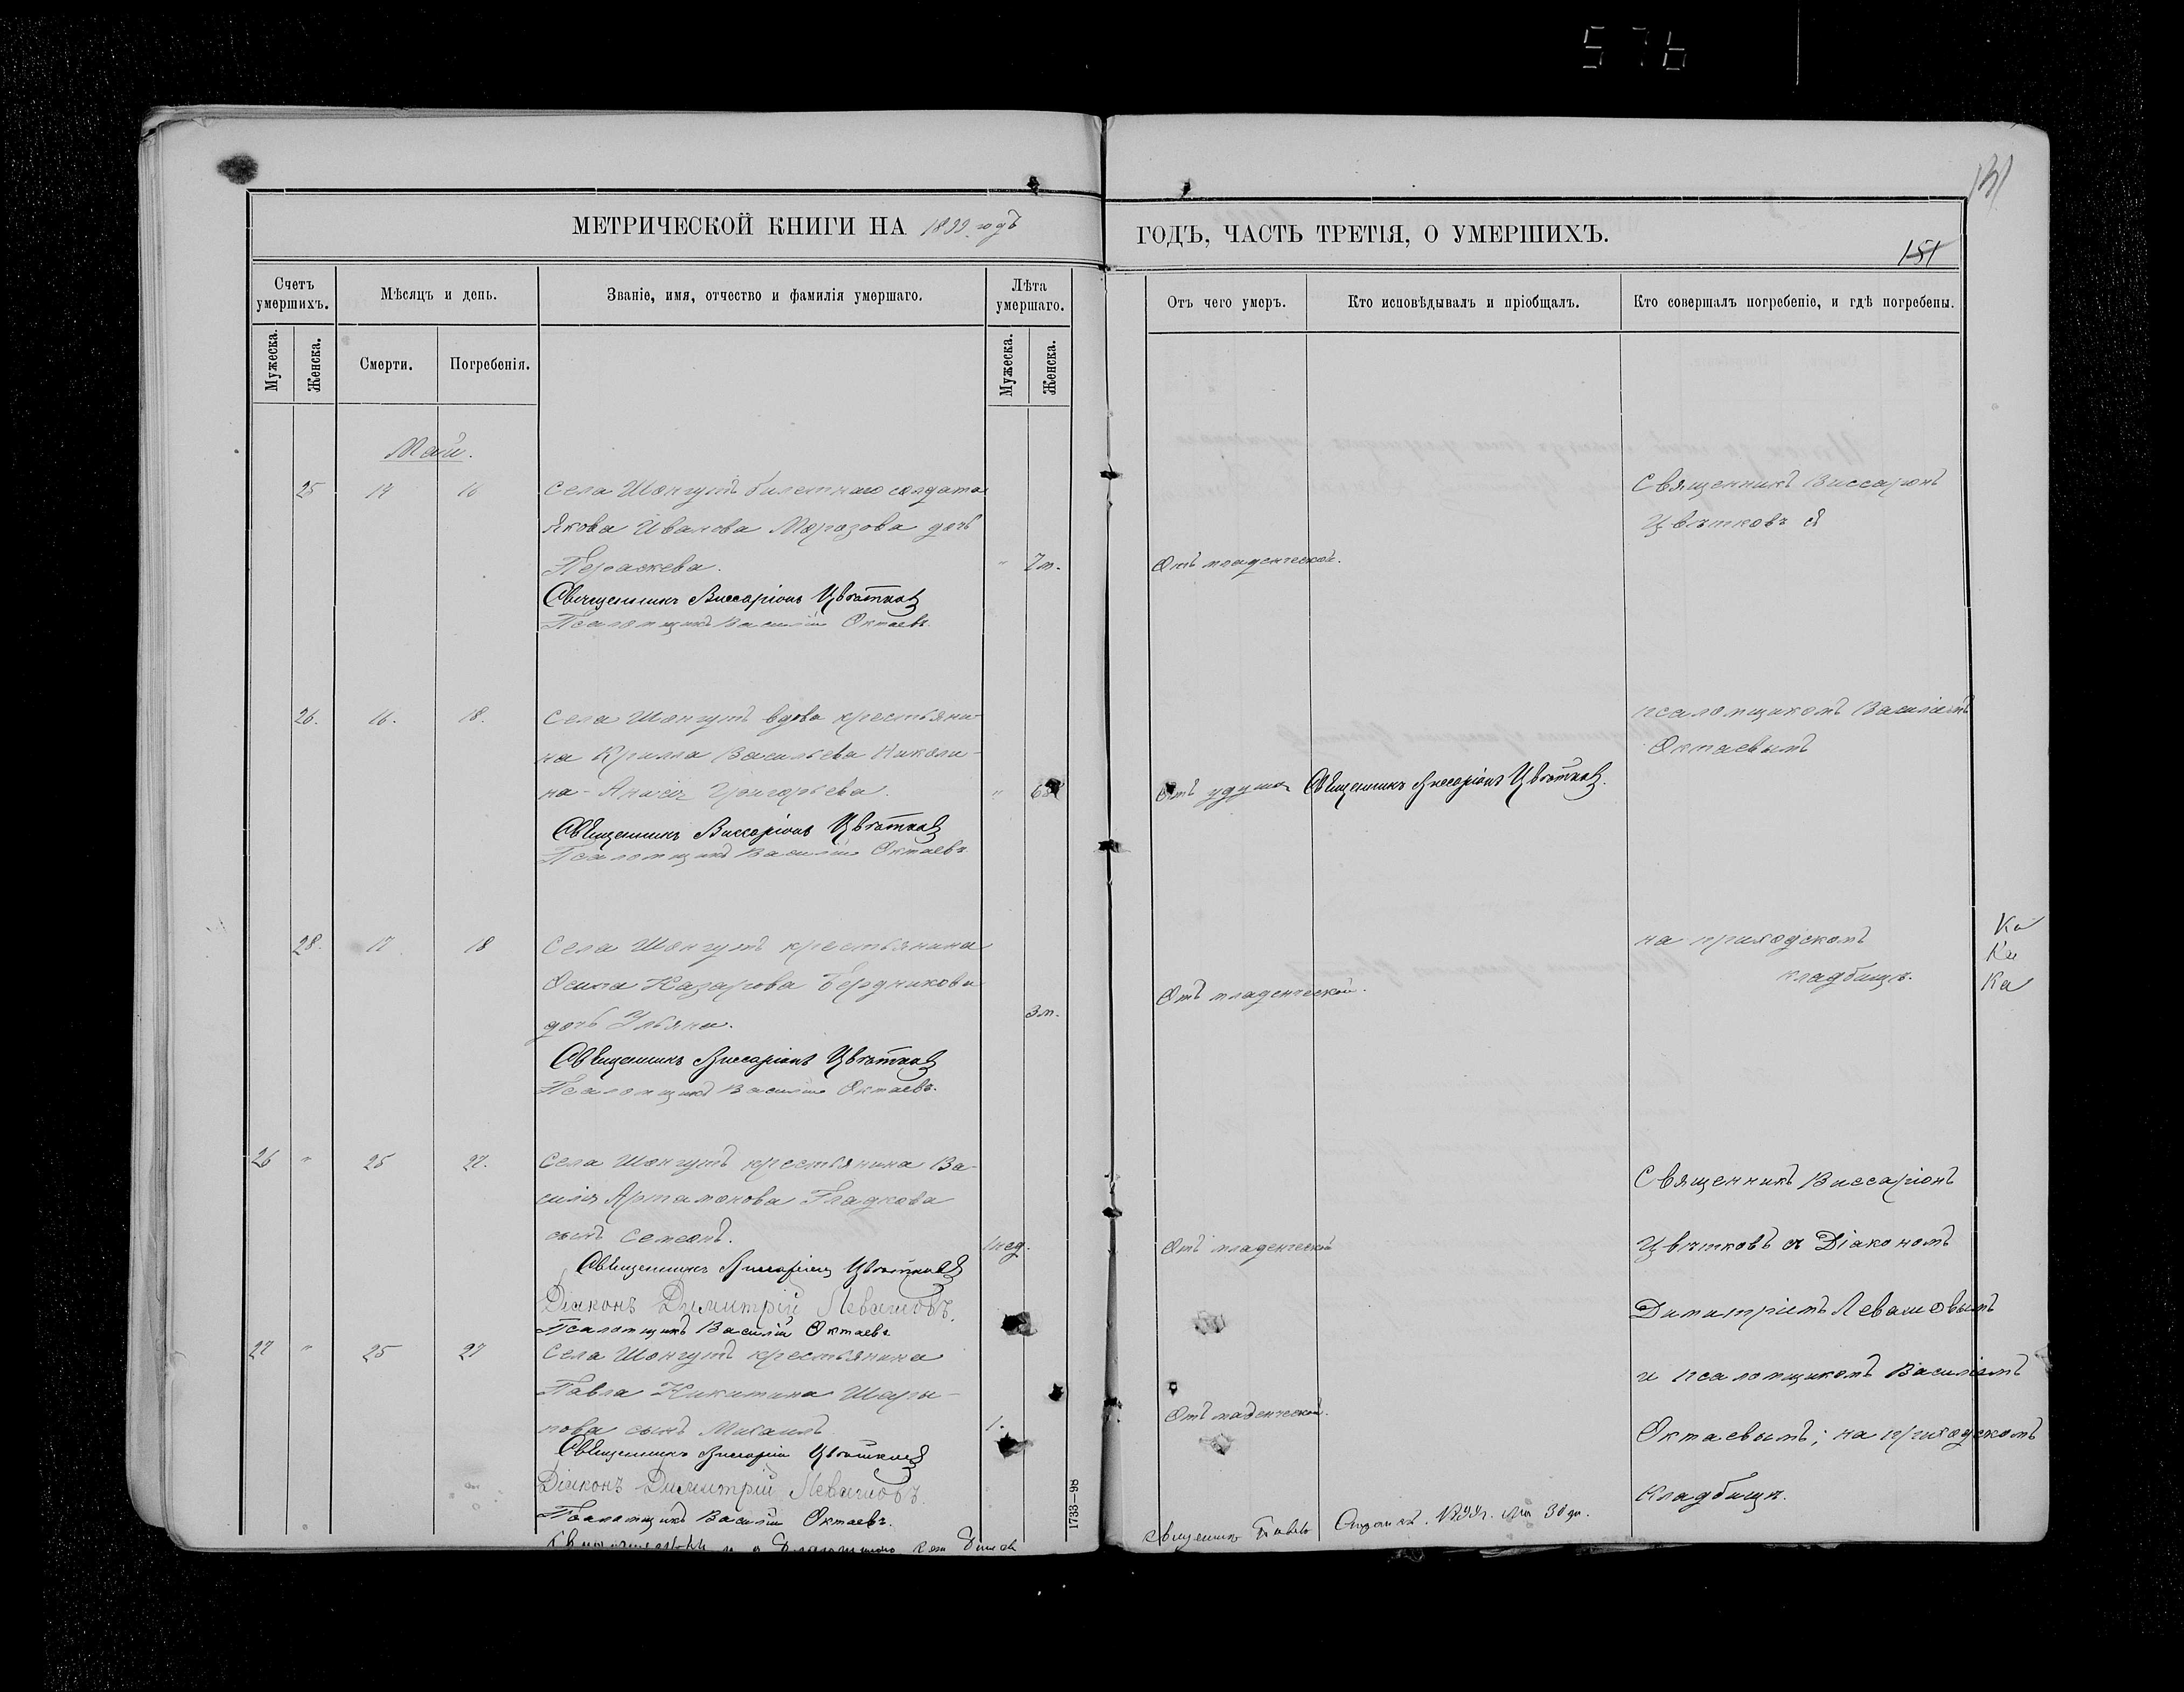 576
131
МЕТРИЧЕСКОЙ КНИГИ НА 1899 годъ
ГОДЪ, ЧАСТЬ ТРЕТІЯ, О УМЕРШИХЪ.
151
Счетъ умершихъ.
Мѣсяцъ и день.
Званіе, имя, отчество и фамилія умершаго.
Лѣта умершаго.
Отъ чего умеръ.
Кто исповѣдывалъ и пріобщалъ.
Кто совершалъ погребеніе, и гдѣ погребены.
Мужеска.
Женска.
Смерти.
Погребенія.
Мужеска.
Женска.
Май.
25 14 16 Села Шонгутъ билетнаго солдата
Якова Иванова Морозова дочь
Параскева. " 7 м. Отъ младенческой.
Священникъ Виссаріонъ Цвѣтковъ
Псаломщикъ Василій Октаевъ.
Священникъ Виссаріонъ
Цвѣтковъ съ
26. 16. 18. Села Шонгутъ вдова крестьяни-
на Кирилла Васильева Николи-
на - Анисія Григорьева. " Отъ удушья Священникъ Виссаріонъ Цвѣтковъ.
Священникъ Виссаріонъ Цвѣтковъ
Псаломщикъ Василій Октаевъ.
псаломщикомъ Василіемъ
Октаевымъ
28. 17 18 Села Шонгутъ крестьянина
Осипа Назарова Бердникова
дочь Ульяна. 3 м. Отъ младенческой.
Священникъ Виссаріонъ Цвѣтковъ
Псаломщикъ Василій Октаевъ.
на приходскомъ
кладбищѣ.
Ка
Ка
Ка
26 " 25 27. Села Шонгутъ крестьянина Ва-
силія Артамонова Гладкова
сынъ Семеонъ. 1 нед. Отъ младенческой
Священникъ Виссаріонъ Цвѣтковъ
Діаконъ Димитрій Левашовъ.
Псаломщикъ Василій Октаевъ
27 " 25 27 Села Шонгутъ крестьянина
Павла Никитина Шары-
пова сынъ Михаилъ 1. Отъ младенческой.
Священникъ Виссаріонъ Цвѣтковъ
Діаконъ Димитрій Левашовъ.
Псаломщикъ Василій Октаевъ.
Священникъ Виссаріонъ
Цвѣтковъ съ Діакономъ
Димитріемъ Левашовымъ
и псаломщикомъ Василіемъ
Октаевымъ; на приходскомъ
кладбищѣ.
1733—98
Священникъ Павелъ 1899 г. 30 дн.